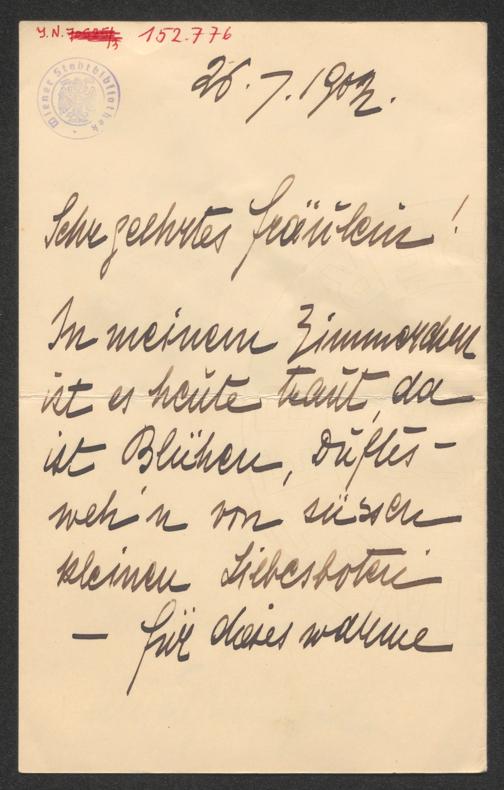 J.N. 152.776
Wiener Stadtbibliothek
26.7.1902.
Sehr geehrtes Fräulein!
In meinem Zimmerchen
ist es heute traut, da
ist Blühen, Düftes-
weh'n von süssen
kleinen Liebesboten
— für dieses warme